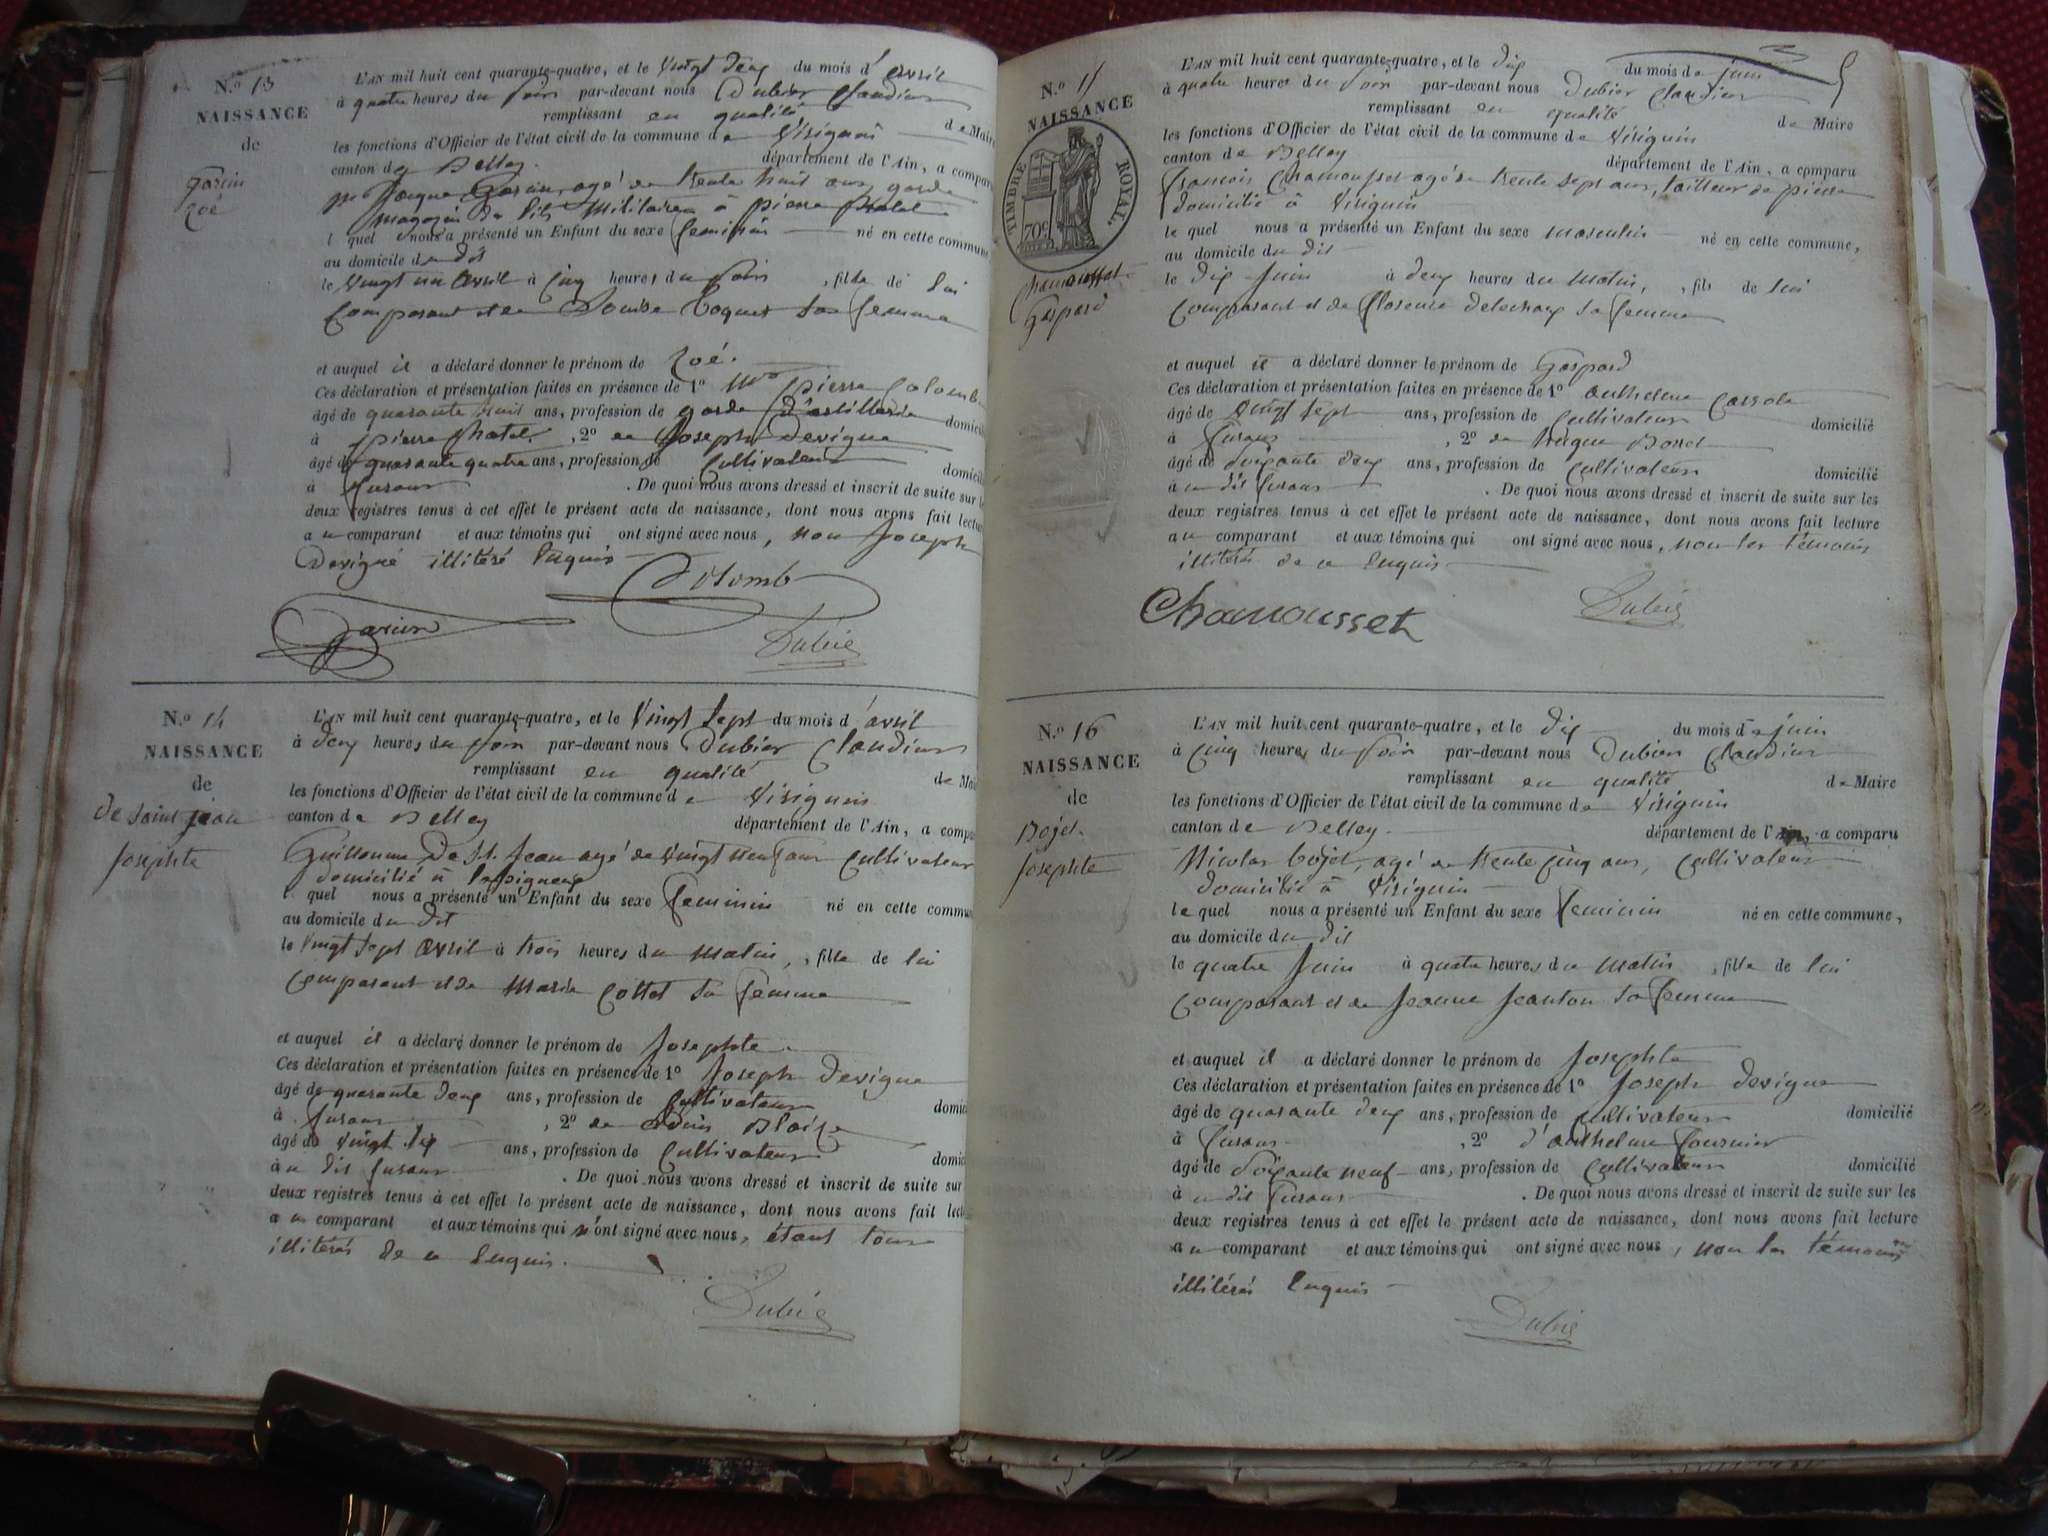 N.º 13
NAISSANCE
de
Garin
Zoé
L'AN mil huit cent quarante-quatre, et le vingt deux du mois d'avril
à quatre heures du soir par-devant nous Dubier Claudius
remplissant en qualité de Maire
les fonctions d'Officier de l'état civil de la commune de Virignin
canton de Belley département de l'Ain, a comparu
agé de trente huit ans, garde
magazin de lits militaires à pierre chatel
lequel nous a présenté un Enfant du sexe feminin né en cette commune,
au domicile du dit
le vingt un avril à cinq heures du soir, fille de lui
comparant et de Louise sa femme
et auquel il a déclaré donner le prénom de Zoé.
Ces déclaration et présentation faites en présence de 1º pierre Colomb
âgé de quarante huit ans, profession de garde d'artillerie domicilié
à pierre chatel, 2º de Joseph Devigne
âgé de quarante quatre ans, profession de cultivateur domicilié
à furans. De quoi nous avons dressé et inscrit de suite sur les
deux registres tenus à cet effet le présent acte de naissance, dont nous avons fait lecture
au comparant et aux témoins qui ont signé avec nous, non Joseph
Devigne illitéré enquis
Colomb
Garin
Dubié
N.º 14
NAISSANCE
de
de Saint jean
Josephte
L'AN mil huit cent quarante-quatre, et le vingt sept du mois d'avril
à deux heures du soir par-devant nous Dubier Claudius
remplissant en qualité de Maire
les fonctions d'Officier de l'état civil de la commune de Virignin
canton de Belley département de l'Ain, a comparu
Guillaume De St. Jean agé de vingt neuf ans cultivateur
domicilié à
lequel nous a présenté un Enfant du sexe feminin né en cette commune
au domicile du dit
le vingt sept avril à trois heures du matin, fille de lui
comparant et de Marie Cottet sa femme
et auquel il a déclaré donner le prénom de Josephte
Ces déclaration et présentation faites en présence de 1º Joseph Devigne
âgé de quarante deux ans, profession de cultivateur domicilié
à furans, 2º de Blaize
âgé de vingt ans, profession de cultivateur domicilié
au dit furans. De quoi nous avons dressé et inscrit de suite sur
deux registres tenus à cet effet le présent acte de naissance, dont nous avons fait lecture
au comparant et aux témoins qui n'ont signé avec nous, étant tous
illitérés de ce enquis.
Dubié
N.º 15
NAISSANCE
TIMBRE ROYAL.
70c
Chamousset
Gaspard
L'AN mil huit cent quarante-quatre, et le dix du mois de juin
à quatre heures du soir par-devant nous Dubier Claudius
remplissant en qualité de Maire
les fonctions d'Officier de l'état civil de la commune de Virignin
canton de Belley département de l'Ain, a comparu
francois Chamousset agé de trente sept ans, tailleur de pierre
domicilié à Virignin
lequel nous a présenté un Enfant du sexe masculin né en cette commune,
au domicile du dit
le dix Juin à deux heures du matin, fils de lui
comparant et de florence sa femme
et auquel il a déclaré donner le prénom de Gaspard
Ces déclaration et présentation faites en présence de 1º anthelme
âgé de vingt sept ans, profession de cultivateur domicilié
à furans, 2º de
âgé de soixante deux ans, profession de cultivateur domicilié
au dit furans. De quoi nous avons dressé et inscrit de suite sur les
deux registres tenus à cet effet le présent acte de naissance, dont nous avons fait lecture
au comparant et aux témoins qui ont signé avec nous, non les témoins
illitérés de ce enquis
Chamousset
Dubié
N.º 16
NAISSANCE
de
Bojet
Josephte
L'AN mil huit cent quarante-quatre, et le dix du mois de juin
à cinq heures du soir par-devant nous Dubier Claudius
remplissant en qualité de Maire
les fonctions d'Officier de l'état civil de la commune de Virignin
canton de Belley département de l'Ain, a comparu
Nicolas bojet, agé de trente cinq ans, cultivateur
domicilié à Virignin
lequel nous a présenté un Enfant du sexe feminin né en cette commune,
au domicile du dit
le quatre Juin à quatre heures du matin, fille de lui
comparant et de Jeanne Jeanton sa femme
et auquel il a déclaré donner le prénom de Josephte
Ces déclaration et présentation faites en présence de 1º Joseph Devigne
âgé de quarante deux ans, profession de cultivateur domicilié
à furans, 2º d'anthelme fournier
âgé de soixante neuf ans, profession de cultivateur domicilié
au dit furans. De quoi nous avons dressé et inscrit de suite sur les
deux registres tenus à cet effet le présent acte de naissance, dont nous avons fait lecture
au comparant et aux témoins qui ont signé avec nous, non les témoins
illitérés enquis
Dubié